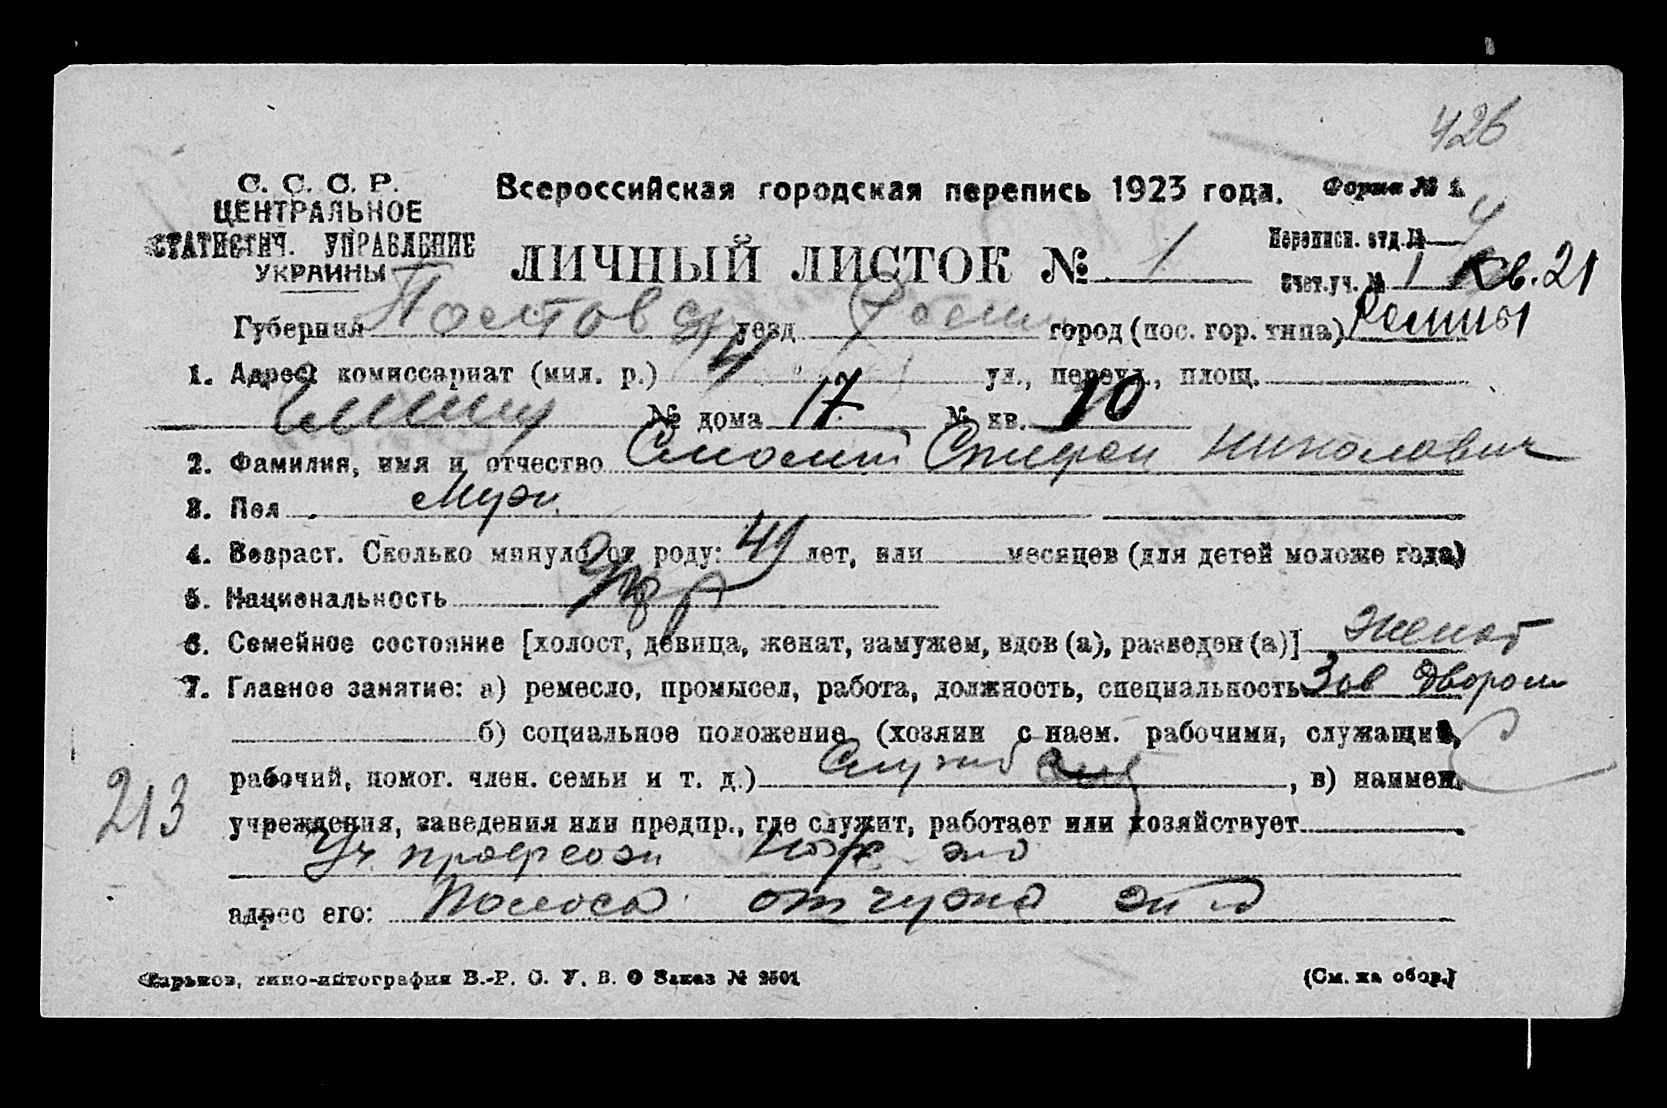 426
С. С. С. Р.
ЦЕНТРАЛЬНОЕ
СТАТИСТИЧ. УПРАВЛЕНИЕ
УКРАИНЫ
Всероссийская городская перепись 1923 года.
Форма № 1.
ЛИЧНЫЙ ЛИСТОК № 1
Переписн. отд. № 4
Счет. уч. № 1 Кв. 21
Губерния Полтовск уезд Ромны город (пос. гор. типа) Ромны
1. Адрес: комиссариат (мил. р.) 4 ул., переул., площ.
№ дома 17 № кв. 10
2. Фамилия, имя и отчество Смолий Стефан Николович
3. Пол Муж.
4. Возраст. Сколько минуло от роду: 49 лет, или месяцев (для детей моложе года)
5. Национальность Укр
6. Семейное состояние [холост, девица, женат, замужем, вдов (а), разведен (а)] женат
7. Главное занятие: а) ремесло, промысел, работа, должность, специальность Зов Двором
б) социальное положение (хозяин с наем. рабочими, служащий,
рабочий, помог. член. семьи и т. д.) Службащ, в) наимен.
учреждения, заведения или предпр., где служит, работает или хозяйствует
213
Уч. профсож эло
адрес его: Полоса отчужд
Харьков, типо-литография В.-Р. С. У. В. О Заказ № 2501
(См. на обор.)